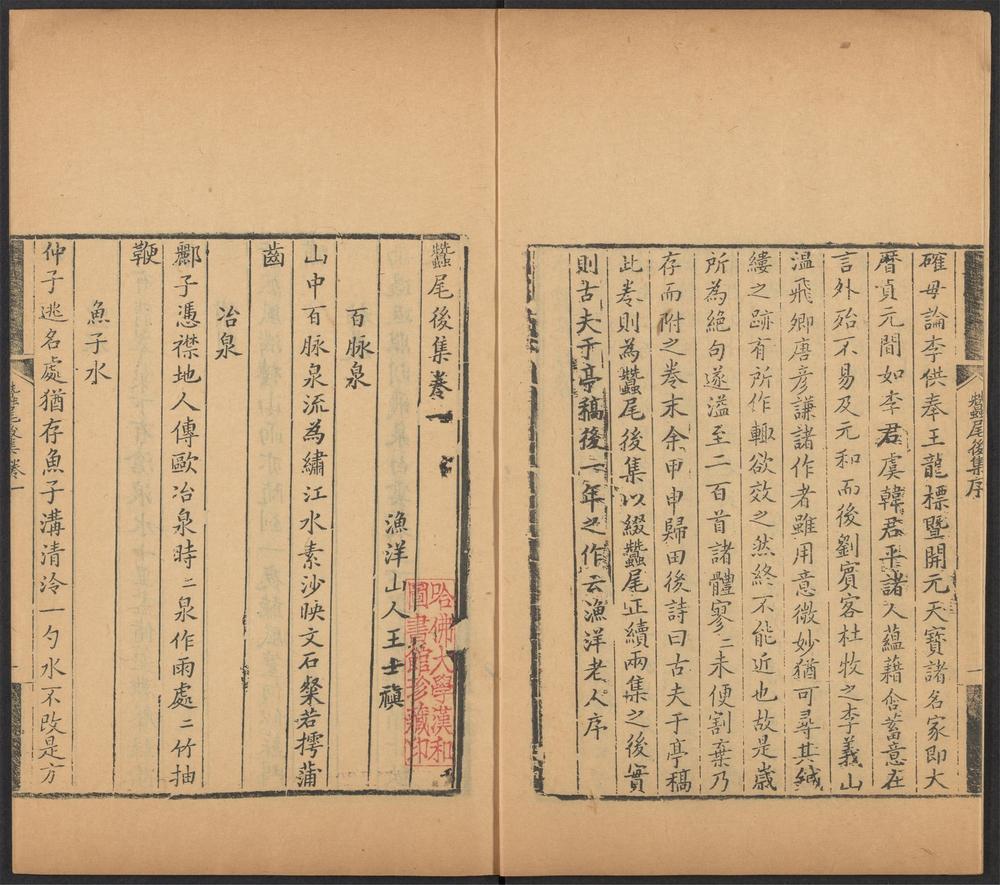 蠶尾後集序
一
確毋論李供奉王龍標暨開元天寶諸名家即大
曆貞元間如李君虞韓君平諸人蘊藉含蓄意在
言外殆不易及元和而後劉賓客杜牧之李義山
溫飛卿唐彦謙諸作者雖用意微妙猶可尋其鍼
縷之跡有所作輒欲效之然終不能近也故是歲
所為絕句遂溢至二百首諸體寥二未便割棄乃
存而附之卷末余甲申歸田後詩曰古夫于亭稿
此卷則為蠶尾後集以綴蠶尾正續兩集之後實
則古夫于亭稿後二年之作云漁洋老人序
蠶尾後集卷一
漁洋山人王士禛
哈佛大學漢和
圖書館珍藏印
百脉泉
山中百脉泉流為繡江水素沙映文石粲若摴蒲
齒
冶泉
酈子憑襟地人傳歐冶泉時二泉作雨處二竹抽
鞭
魚子水
仲子逃名處猶存魚子溝清泠一勺水不改是方
蠶尾後集卷一
一